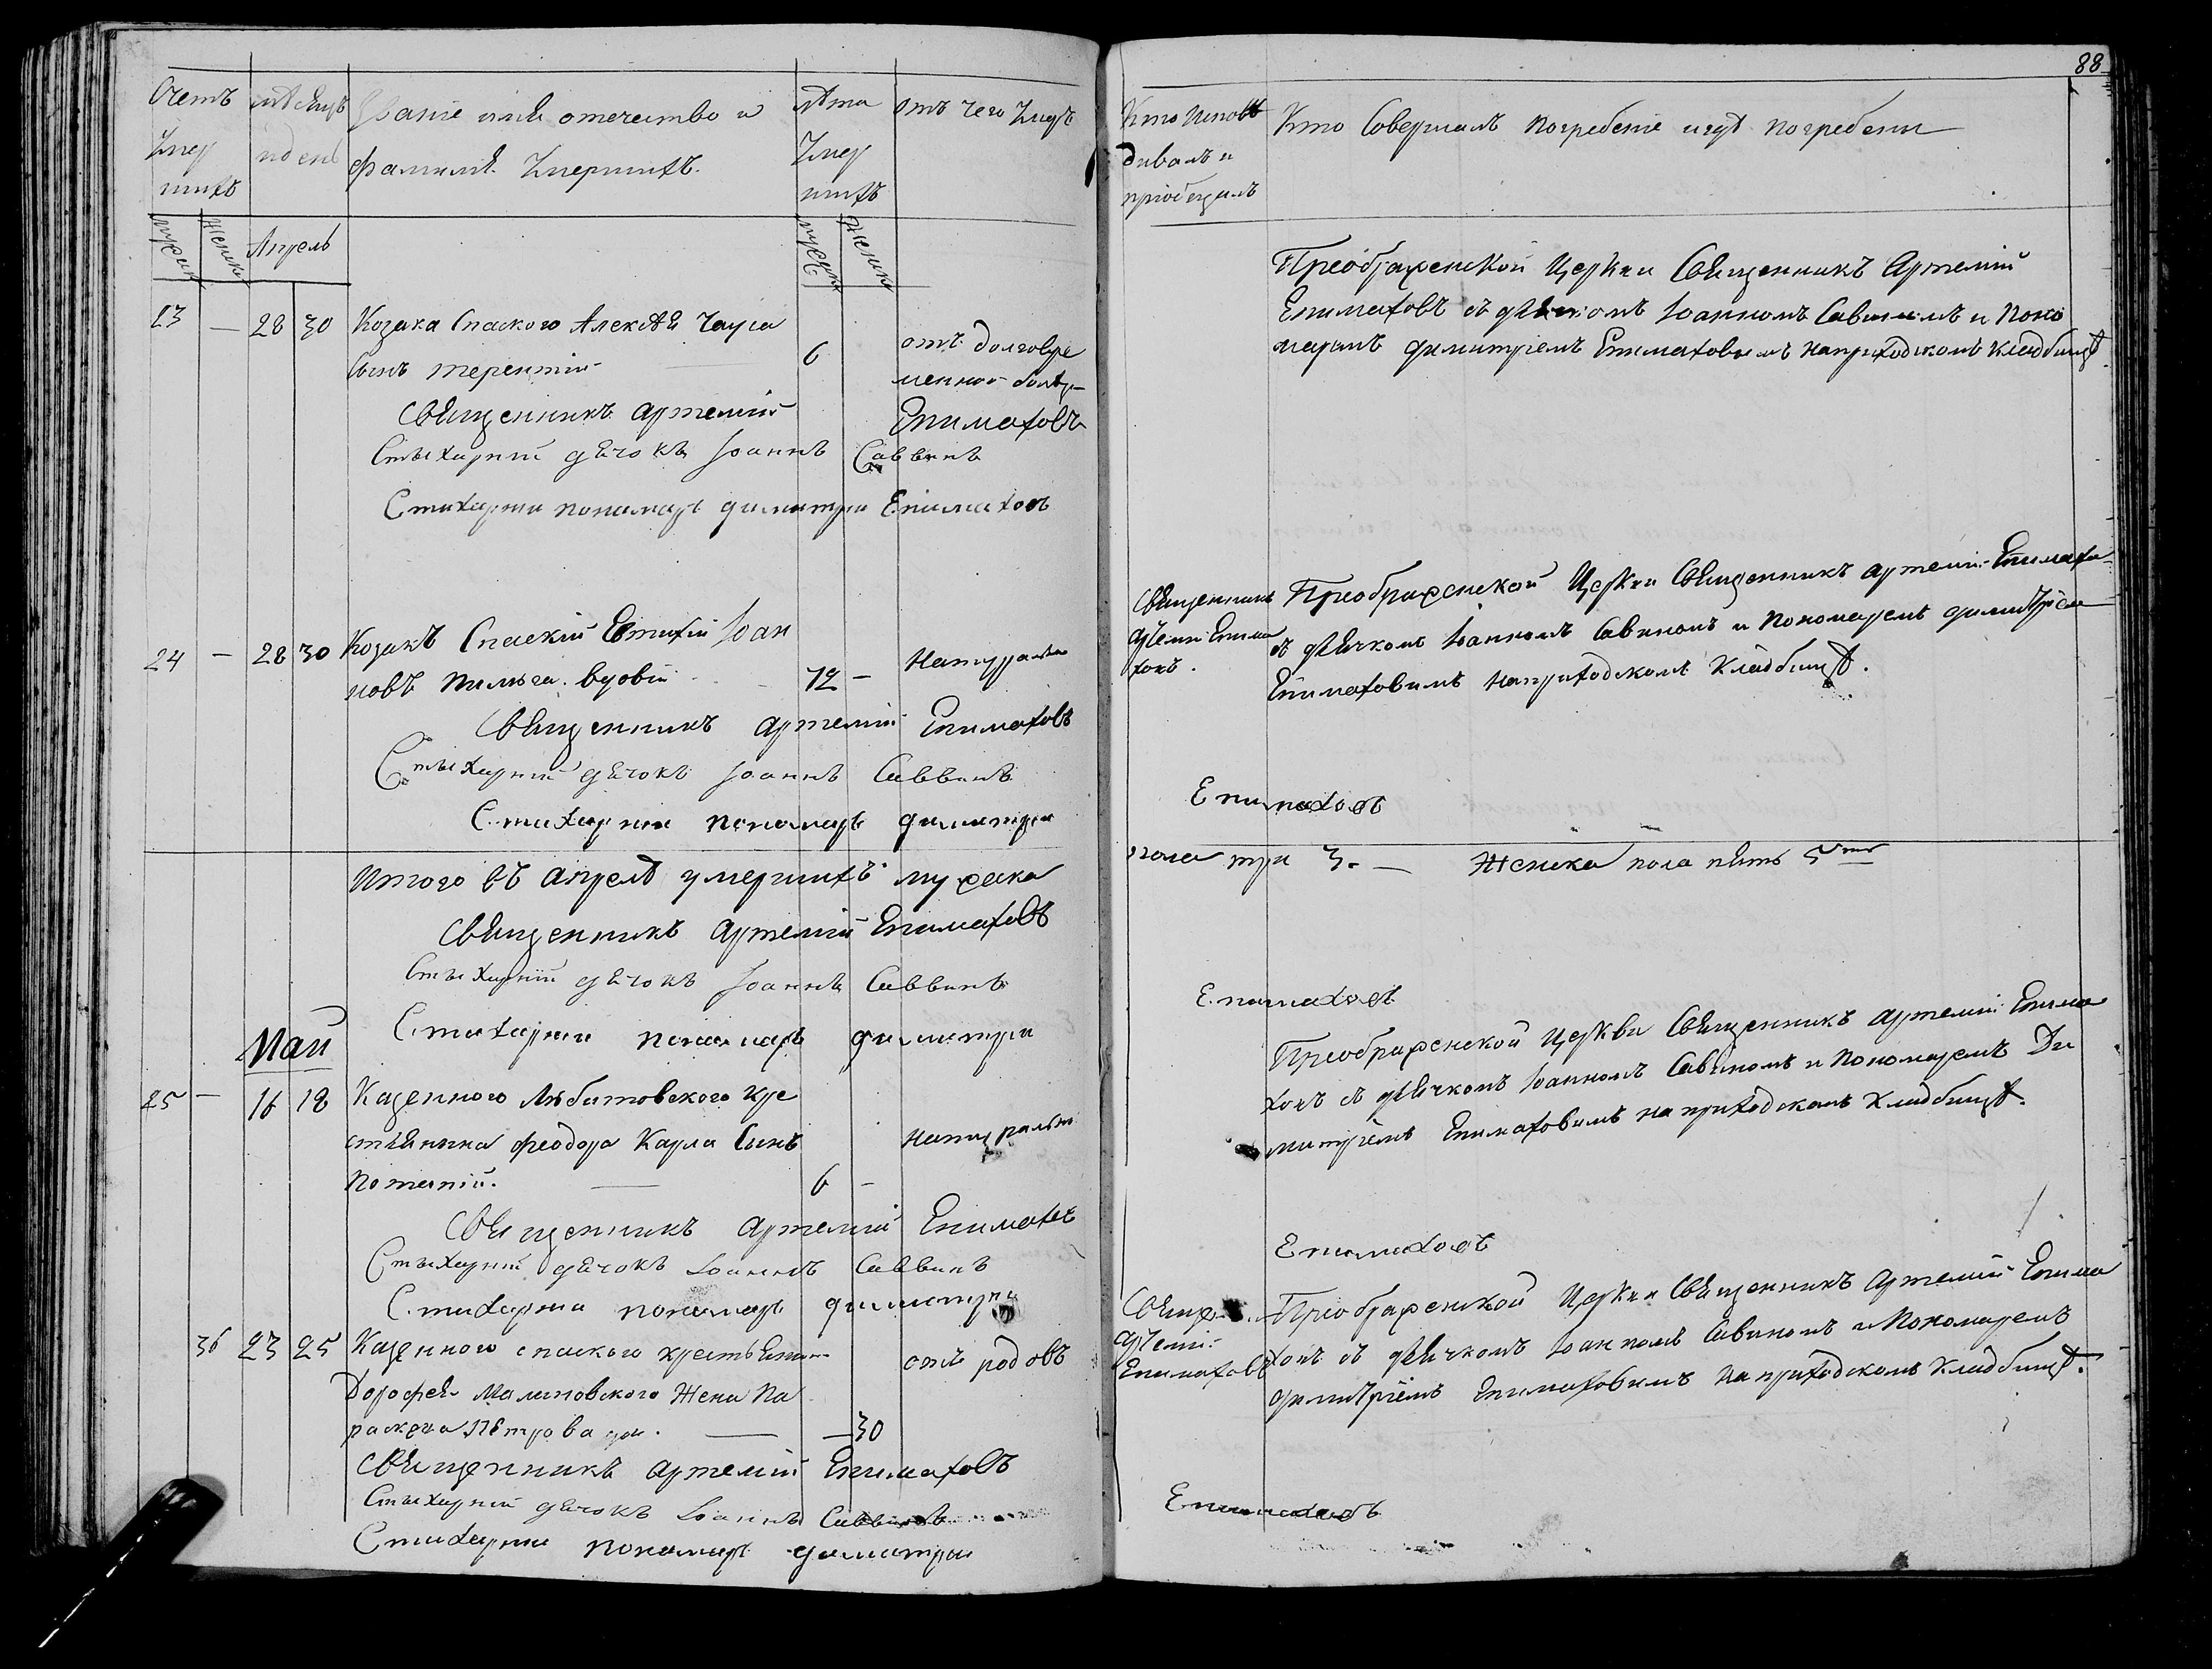 Счетъ умершихъ
мѣсяцъ и день
Званіе имя отечество и
фамилія умершихъ.
лѣта умершихъ
отъ чего умеръ
мужск женск
Апрель
мужска женска
23 — 28 30 Козака Спаского Алексѣя
сынъ терентій — 6 отъ долговре
менной болѣз
Священникъ артемій Епимаховъ
Стыхарній дячокъ Іоаннъ Саввинъ
Стихарни пономарь димитри Епимаховъ
24 — 28 30 Козакъ Спаский Евтихій Іоан
новъ вдовій 72 — Натурально
Священникъ артемій Епимаховъ
Стыхарній дячокъ Іоаннъ Саввинъ
Стихарни пономарь димитри
Итого въ апрелѣ умершихъ мужска
Священникъ артемій Епимаховъ
Стыхарній дячокъ Іоаннъ Саввинъ
Стихарни пономарь димитри
Май
25 — 16 18 Казенного Любитовского кре
стянина феодора Карпа сынъ натурально
Потапій. — 6 —
Священникъ артемій Епимаховъ
Стыхарній дячокъ Іоаннъ Саввинъ
Стихарни пономарь димитри
36 23 25 Казенного спаского крестьянина отъ родовъ
Дорофея Малиновского Жена Па
раскева Петрова — 30
Священникъ артемій Епимаховъ
Стыхарній дячокъ Іоаннъ Саввинъ
Стихарни пономарь димитри
88
Кто исповѣ
дивалъ и
пріобщилъ
Кто Совершалъ погребеніе и гдѣ погребены
Преображенской Церкви Священникъ Артемій
Епимаховъ съ дячкомъ Іоанномъ Савинымъ и Поно
маремъ димитріемъ Епимаховымъ на приходскомъ кладбищѣ
Священникъ
Артемій Епима
ховъ.
Преображенской Церкви Священникъ артемій Епимахо
съ дячкомъ Іоанномъ Савиномъ и Пономаремъ димитріем
Епимаховимъ на приходскомъ кладбищѣ.
Епимаховъ
пола три 3. — Женска пола пять 5
Епимаховъ
Преображенской Церкви Священникъ артемій Епима
ховъ съ дячкомъ Іоанномъ Савиномъ и Пономаремъ Ди
митріемъ Епимаховимъ на приходскомъ кладбищѣ.
Епимаховъ
Священ
Артемій
Епимаховъ
Преображенской Церкви Священникъ Артемій Епима
ховъ съ дячкомъ Іоанномъ Савиномъ и Пономаремъ
димитріемъ Епимаховимъ на приходскомъ кладбищѣ.
Епимаховъ